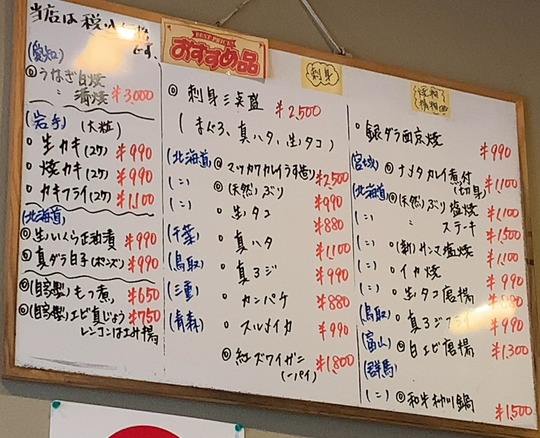 当店は税込価格
です、
BEST PRICE
おすすめ品
(愛知)
◎うなぎ白焼
〃 蒲焼 ¥3,000
(岩手) (大粒)
・生カキ(2ケ) ¥990
・焼カキ(2ケ) ¥990
・カキフライ(2ケ) ¥1,100
(北海道)
◎生いくら正油漬 ¥990
◎真ダラ白子(ポンズ) ¥990
◎(自家製)もつ煮 ¥650
◎(自家製)エビ真じょう ¥750
レンコンはさみ揚
刺身
◎刺身三点盛 ¥2,500
(まぐろ、真ハタ、生タコ)
(北海道)◎マツカワカレイうす造り ¥2,500
(〃)◎(天然)ぶり ¥990
(〃)・生タコ ¥880
(千葉)・真ハタ ¥1,100
(鳥取)・真アジ ¥990
(三重)・カンパチ ¥880
(青森)・スルメイカ ¥990
◎紅ズワイガニ ¥1,800
(一パイ)
・銀ダラ西京焼 ¥990
宮城)◎ナメタカレイ煮付 ¥1,100
(切身)
(北海道)◎(天然)ぶり塩焼 ¥1,100
(〃) 〃 ステーキ ¥1,500
(〃)・(新)サンマ塩焼 ¥1,100
(〃)・イカ焼 ¥990
(〃)・生タコ唐揚 ¥990
(鳥取)・真アジフライ ¥990
(富山)◎白エビ唐揚 ¥1,300
(群馬)
(〃)◎和牛柳川鍋 ¥1,500